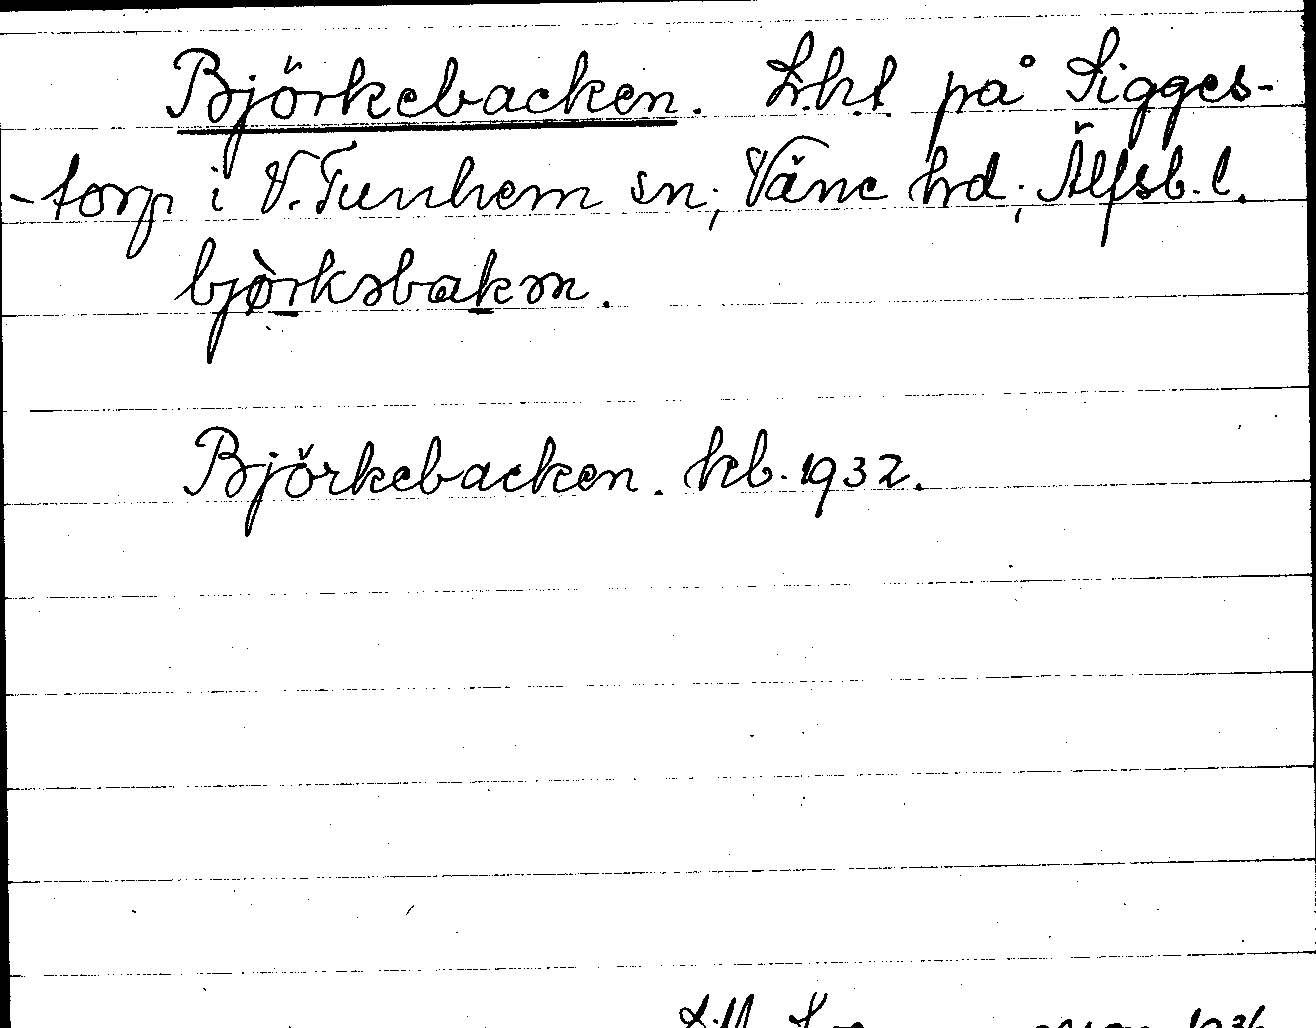 Björkebacken. Lht på Sigges-
-torp i V. Tunhem sn; Väne hd; Älfsb. l.
bjørkəbakən.
Björkebacken. kb. 1932.